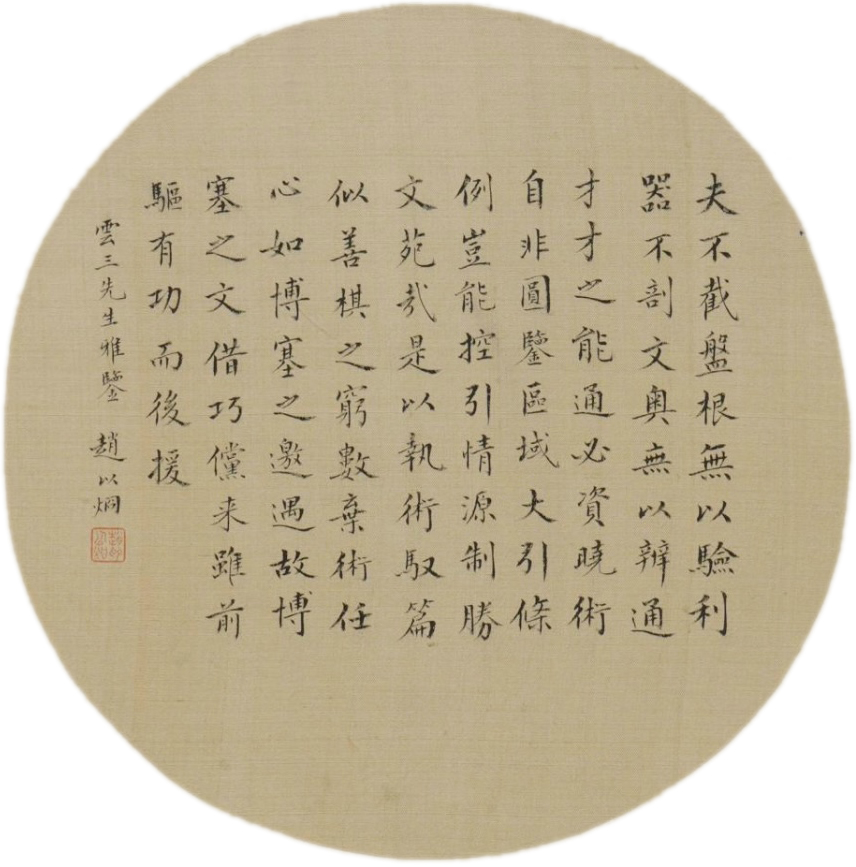 夫不截盤根無以驗利
器不剖文奧無以辨通
才才之能通必資曉術
自非圓鑒區域大引條
例豈能控引情源制勝
文苑哉是以執術馭篇
似善棋之窮數棄術任
心如博塞之邀遇故博
塞之文借巧儻来雖前
驅有功而後援
雲三先生雅鑒 趙以炯